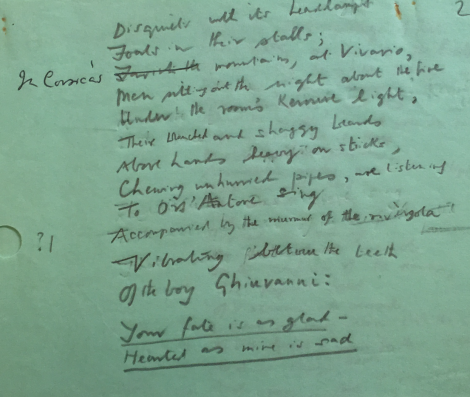 2
Disquiets with its headlamps
Foals in their stalls;
In Corsica's mountains, at Vivario,
Men sitting out the night about the fire
Under the room's Kerosene light,
Their blunted and shaggy heads
Above hands heavy on sticks,
Chewing unhurried pipes, are listening
To Ors'Antone sing
?1 Accompanied by the murmur of the
Vibrating between the teeth
Of the boy Ghiuvanni:
Your fate is as glad-
Hearted as mine is sad